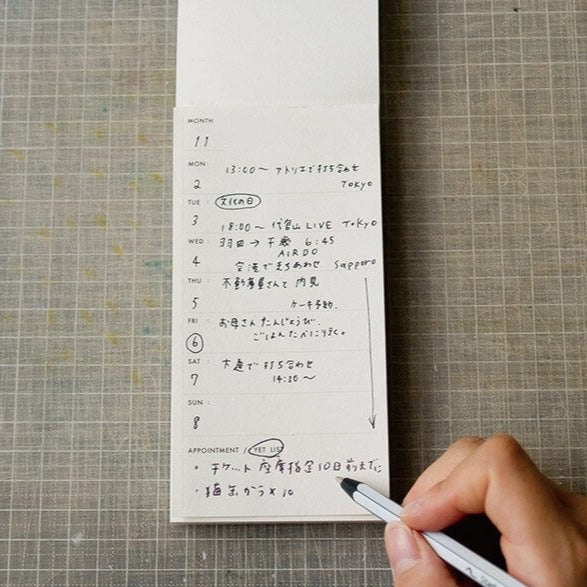 MONTH
11
MON:
2
13:00〜 アトリエで打ち合わせ
TOKYO
TUE:
文化の日
3
18:00〜 代官山 LIVE TOKYO
WED:
羽田→千歳 6:45
AIRDO
4
空港でまちあわせ Sapporo
THU:
不動産屋さんと内見
5
ケーキ予約.
FRI:
お母さんたんじょうび.
6
ごはんたべに行く。
SAT:
大通で打ち合わせ
7
14:30〜
SUN:
8
APPOINTMENT / YET LIST
・チケット座席指定10日前までに
・猫缶かう×10